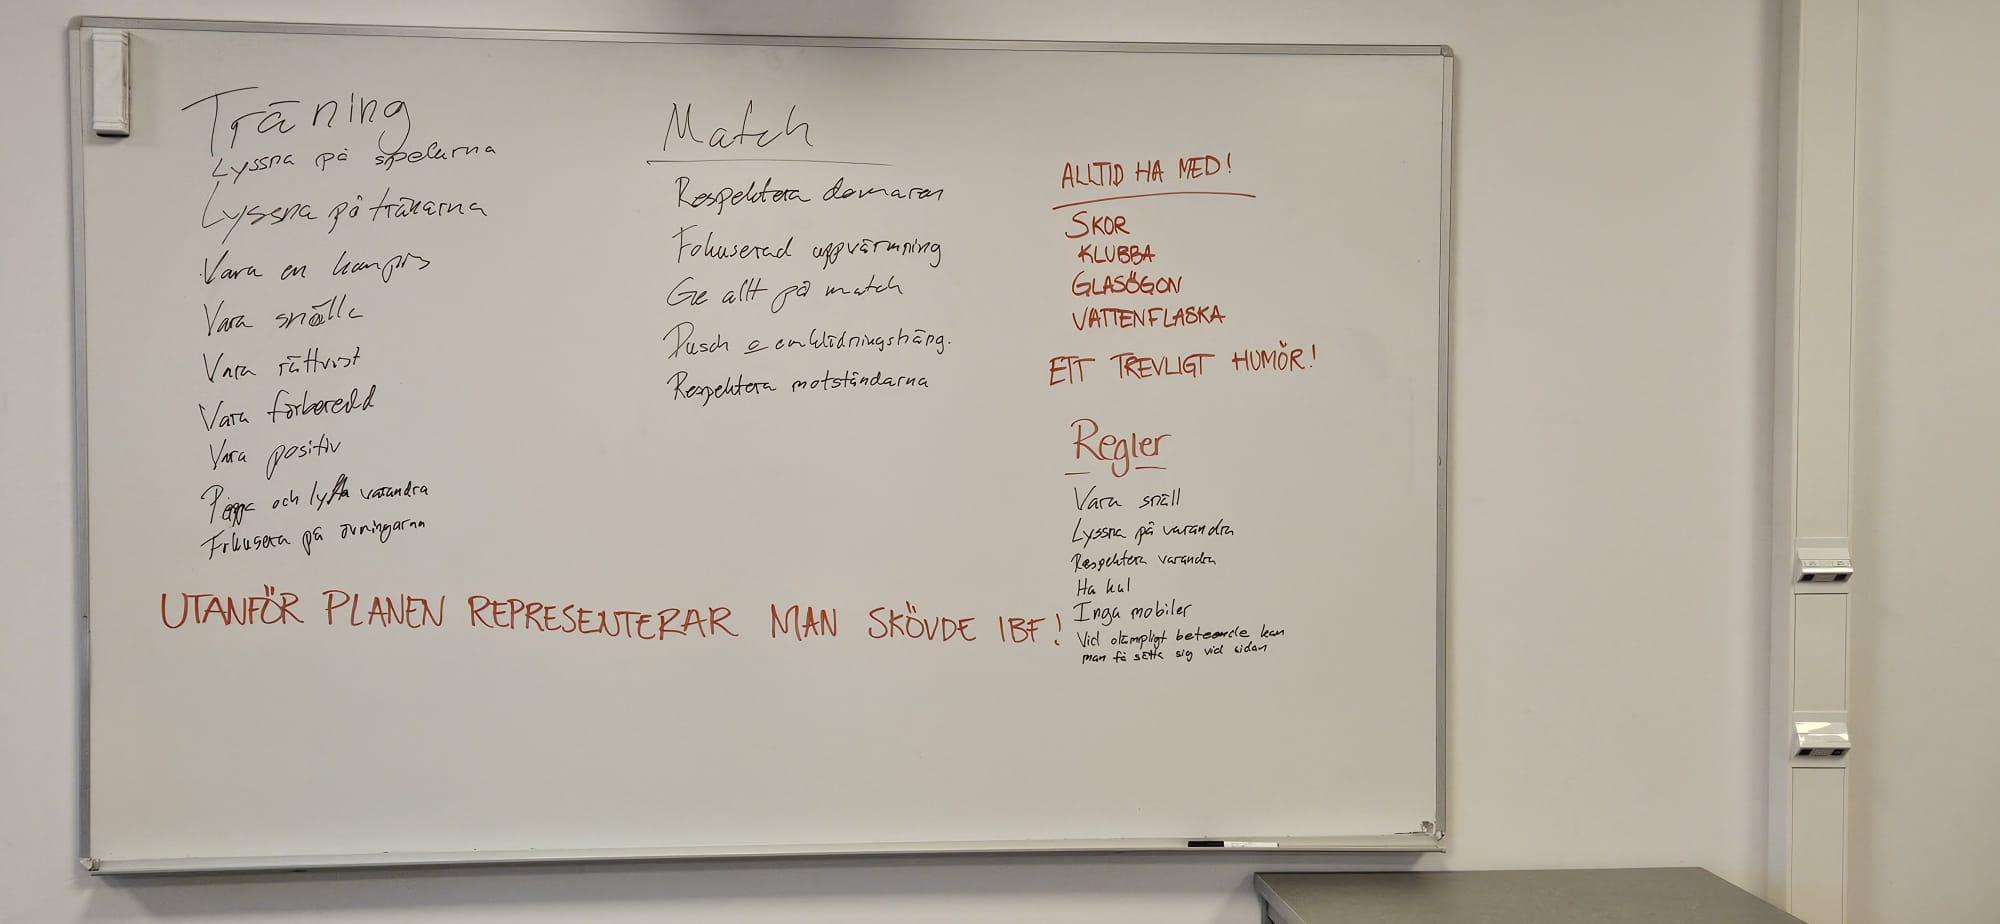 Träning
Lyssna på spelarna
Lyssna på tränarna
Vara en kompis
Vara snälla
Vara rättvist
Vara förberedd
Vara positiv
Peppa och lyfta varandra
Fokusera på övningarna
Match
Respektera domaren
Fokuserad uppvärmning
Ge allt på match
Dusch o omklädningshäng.
Respektera motståndarna
ALLTID HA MED!
SKOR
KLUBBA
GLASÖGON
VATTENFLASKA
ETT TREVLIGT HUMÖR!
Regler
Vara snäll
Lyssna på varandra
Respektera varandra
Ha kul
Inga mobiler
Vid olämpligt beteende kan
man få sätta sig vid sidan
UTANFÖR PLANEN REPRESENTERAR MAN SKÖVDE IBF!